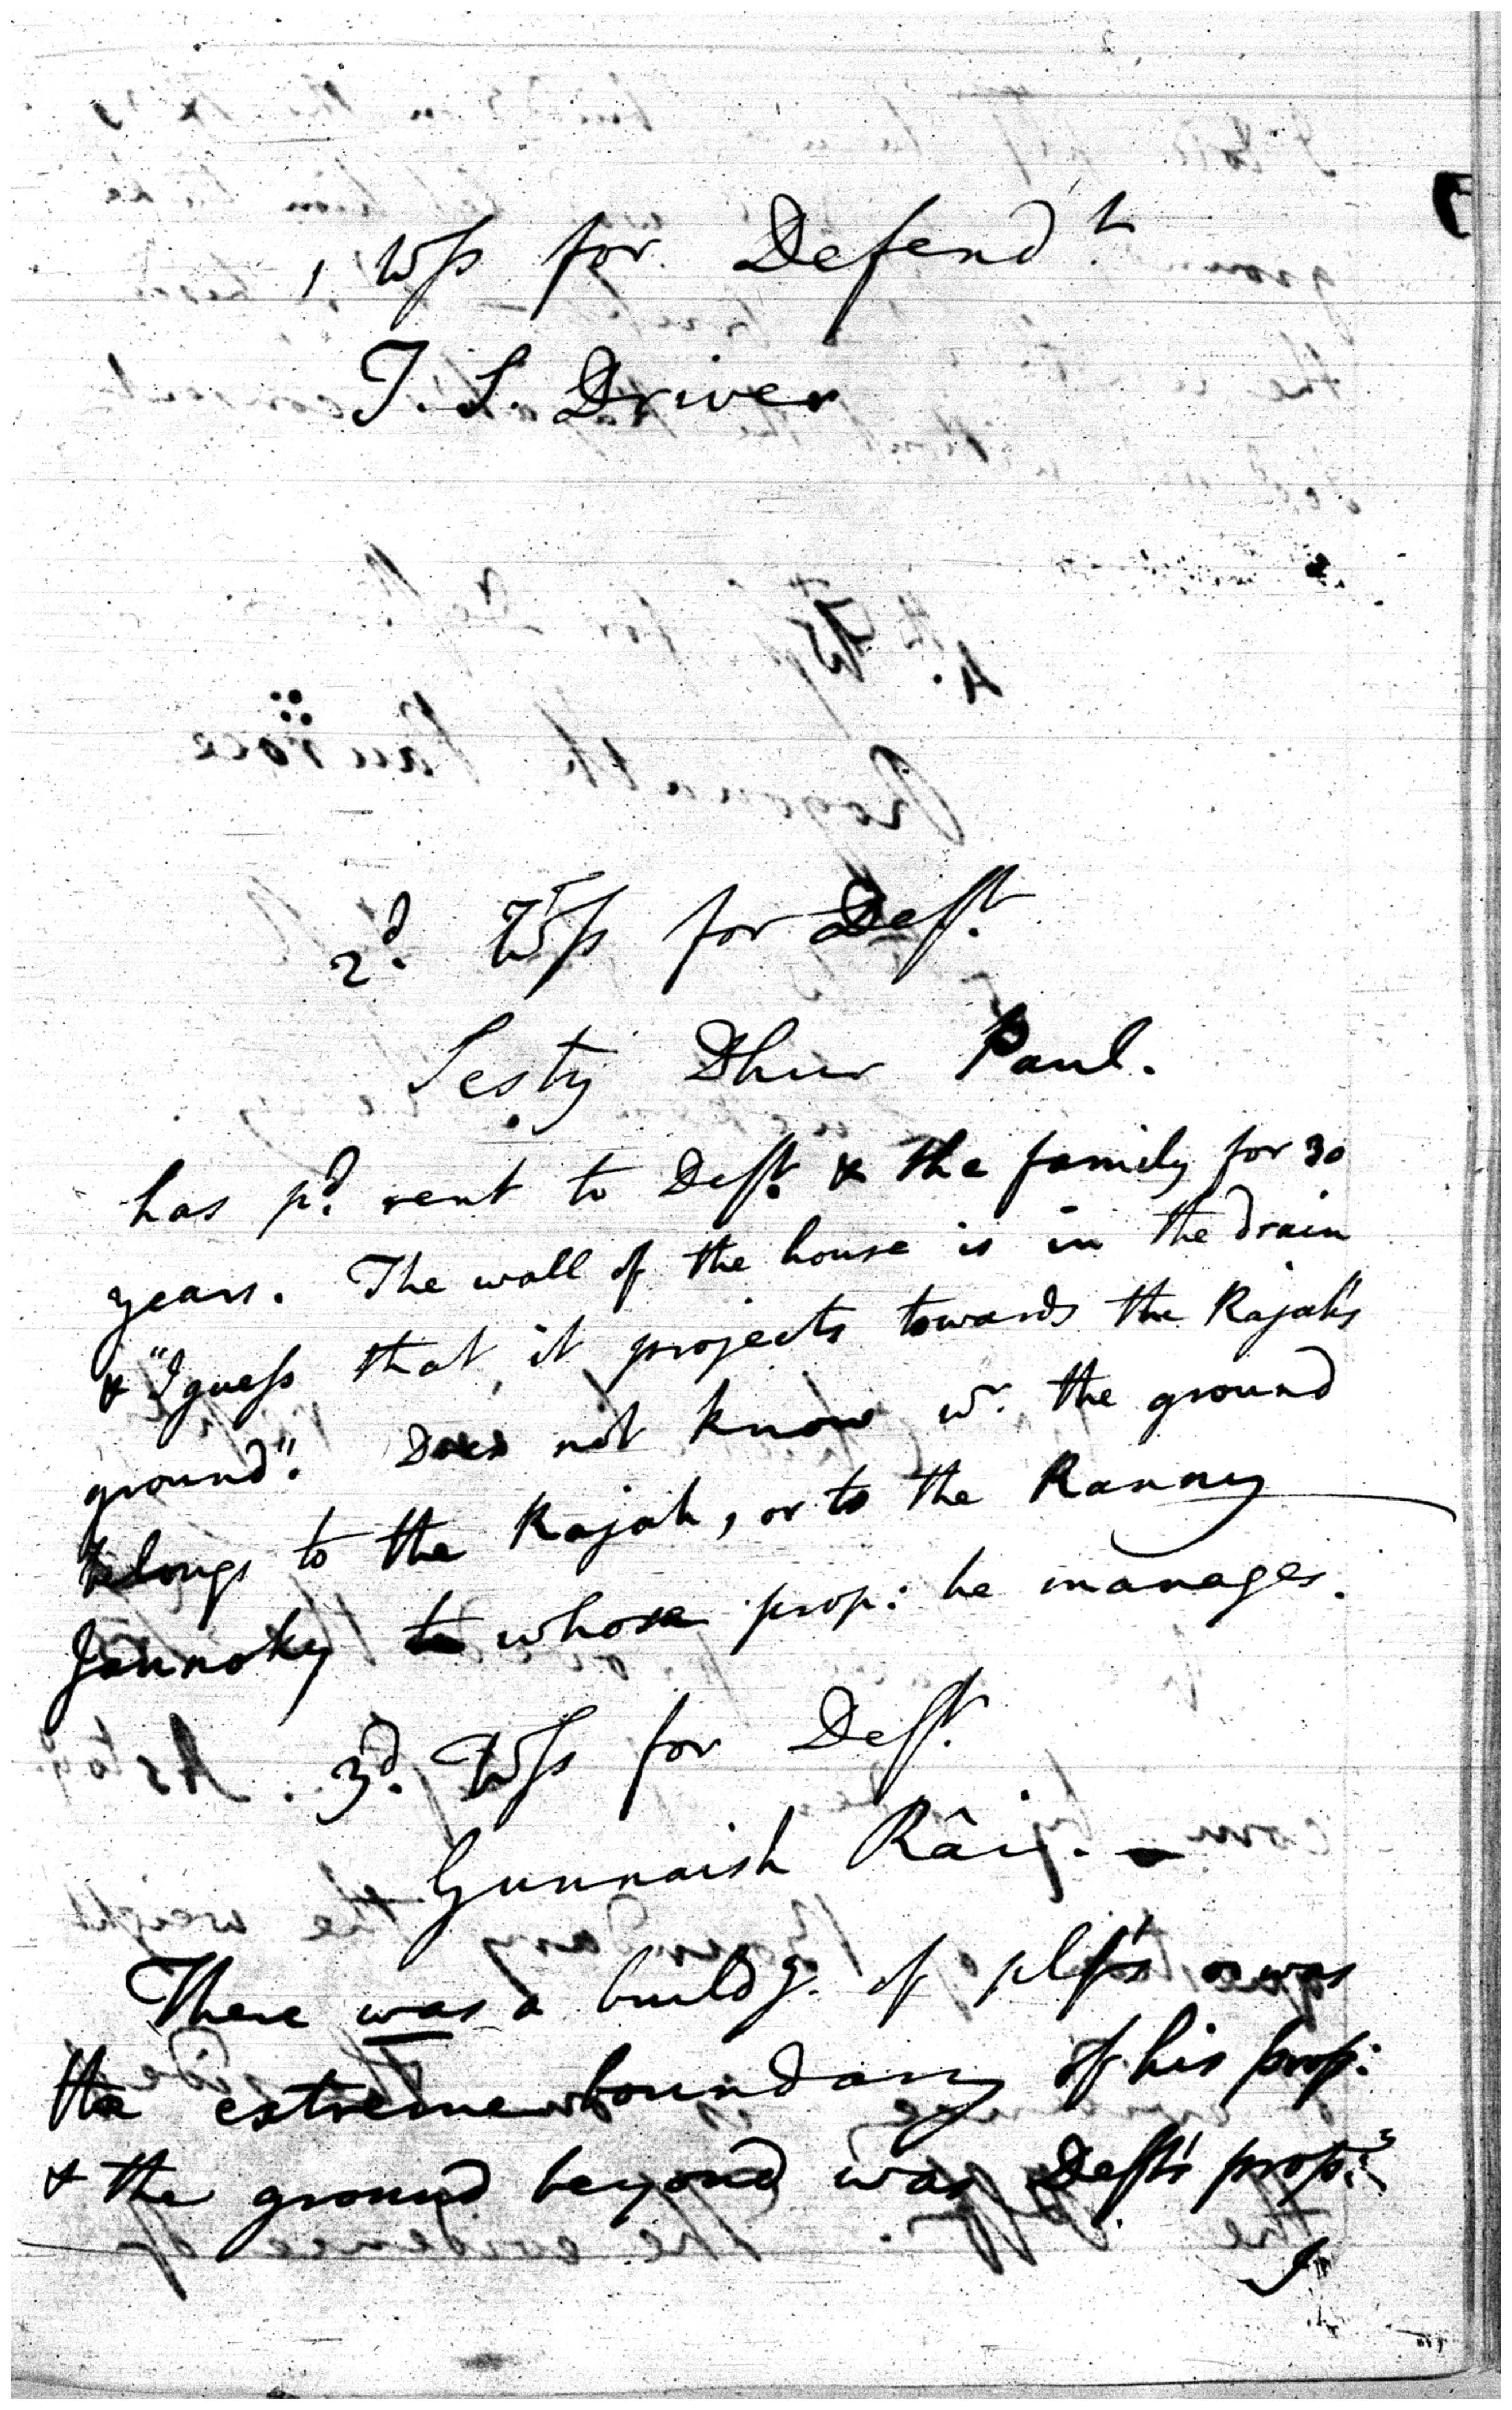 1 Wss for Defendt.
T. S. Driver
2d. Wss for Deft.
Sesty Dhur Paul.
has pd. rent to Deft. & the family for 30
years. The wall of the house is in the drain
& "I guess that it projects towards the Rajah's
ground". Does not know wr. the ground
belongs to the Rajah, or to the Ranny
Jannoky whose prop: he manages.
3d. Wss for Deft.
Gunnaish Râij.
There was a buildg. of plfs was
the extreme boundary of his prop:
& the ground beyond was Deft's prop:
I